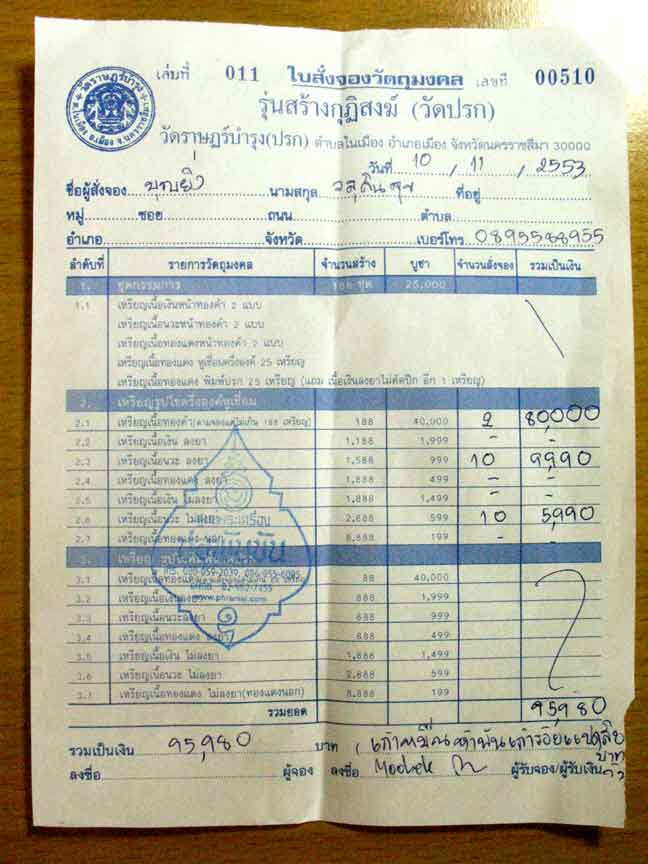 เล่มที่ 011 ใบสั่งจองวัตถุมงคล เลขที่ 00510
รุ่นสร้างกุฏิสงฆ์ (วัดปรก)
วัดราษฎร์บำรุง(ปรก) ตำบลในเมือง อำเภอเมือง จังหวัดนครราชสีมา 30000
วันที่ 10 / 11 / 2553
ชื่อผู้สั่งจอง นามสกุล ที่อยู่
หมู่ ซอย ถนน ตำบล
อำเภอ จังหวัด เบอร์โทร 0895588955
ลำดับที่ รายการวัตถุมงคล จำนวนสร้าง บูชา จำนวนสั่งจอง รวมเป็นเงิน
1. ชุดกรรมการ 188 ชุด 25,000
1.1 เหรียญเนื้อเงินหน้าทองคำ 2 แบบ
เหรียญเนื้อนวะหน้าทองคำ 2 แบบ
เหรียญเนื้อทองแดงหน้าทองคำ 2 แบบ
เหรียญเนื้อทองแดง หูเชื่อมครึ่งองค์ 25 เหรียญ
เหรียญเนื้อทองแดง พิมพ์ปรก 25 เหรียญ (แถม เนื้อเงินลงยาไม่ตัดปีก อีก 1 เหรียญ)
2. เหรียญรูปไข่ครึ่งองค์หูเชื่อม
2.1 เหรียญเนื้อทองคำ(ตามจองแต่ไม่เกิน 188 เหรียญ) 188 40,000 2 80,000
2.2 เหรียญเนื้อเงิน ลงยา 1,188 1,999 -  -
2.3 เหรียญเนื้อนวะ ลงยา 1,588 999 10 9,990
2.4 เหรียญเนื้อทองแดง ลงยา 1,888 499 - -
2.5 เหรียญเนื้อเงิน ไม่ลงยา 1,888 1,499 - -
2.6 เหรียญเนื้อนวะ ไม่ลงยา 2,888 599 10 5,990
2.7 เหรียญเนื้อทองแดง นอก 8,888 199 - -
3. เหรียญ
3.1 เหรียญเนื้อทองคำ 88 40,000
3.2 เหรียญเนื้อเงินลงยา 888 1,999
3.3 เหรียญเนื้อนวะลงยา 888 999
3.4 เหรียญเนื้อทองแดง ลงยา 888 499
3.5 เหรียญเนื้อเงิน ไม่ลงยา 1,888 1,499
3.6 เหรียญเนื้อนวะ ไม่ลงยา 2,888 599
3.7 เหรียญเนื้อทองแดง ไม่ลงยา(ทองแดงนอก) 8,888 199
รวมยอด 95,980
รวมเป็นเงิน 95,980 บาท (เก้าหมื่นห้าพันเก้าร้อยแปดสิบ
บาท
ลงชื่อ ผู้จอง ลงชื่อ ผู้รับจอง/ผู้รับเงิน
www.phransi.com